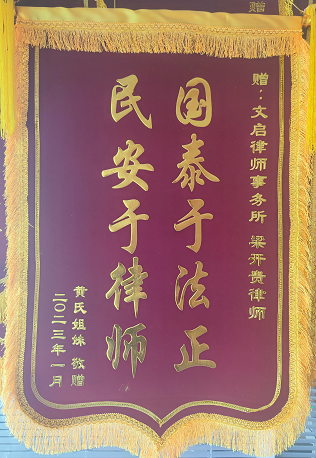 赠：文启律师事务所 梁开贵律师
国泰于法正
民安于律师
黄氏姐妹 敬赠
二〇二三年一月